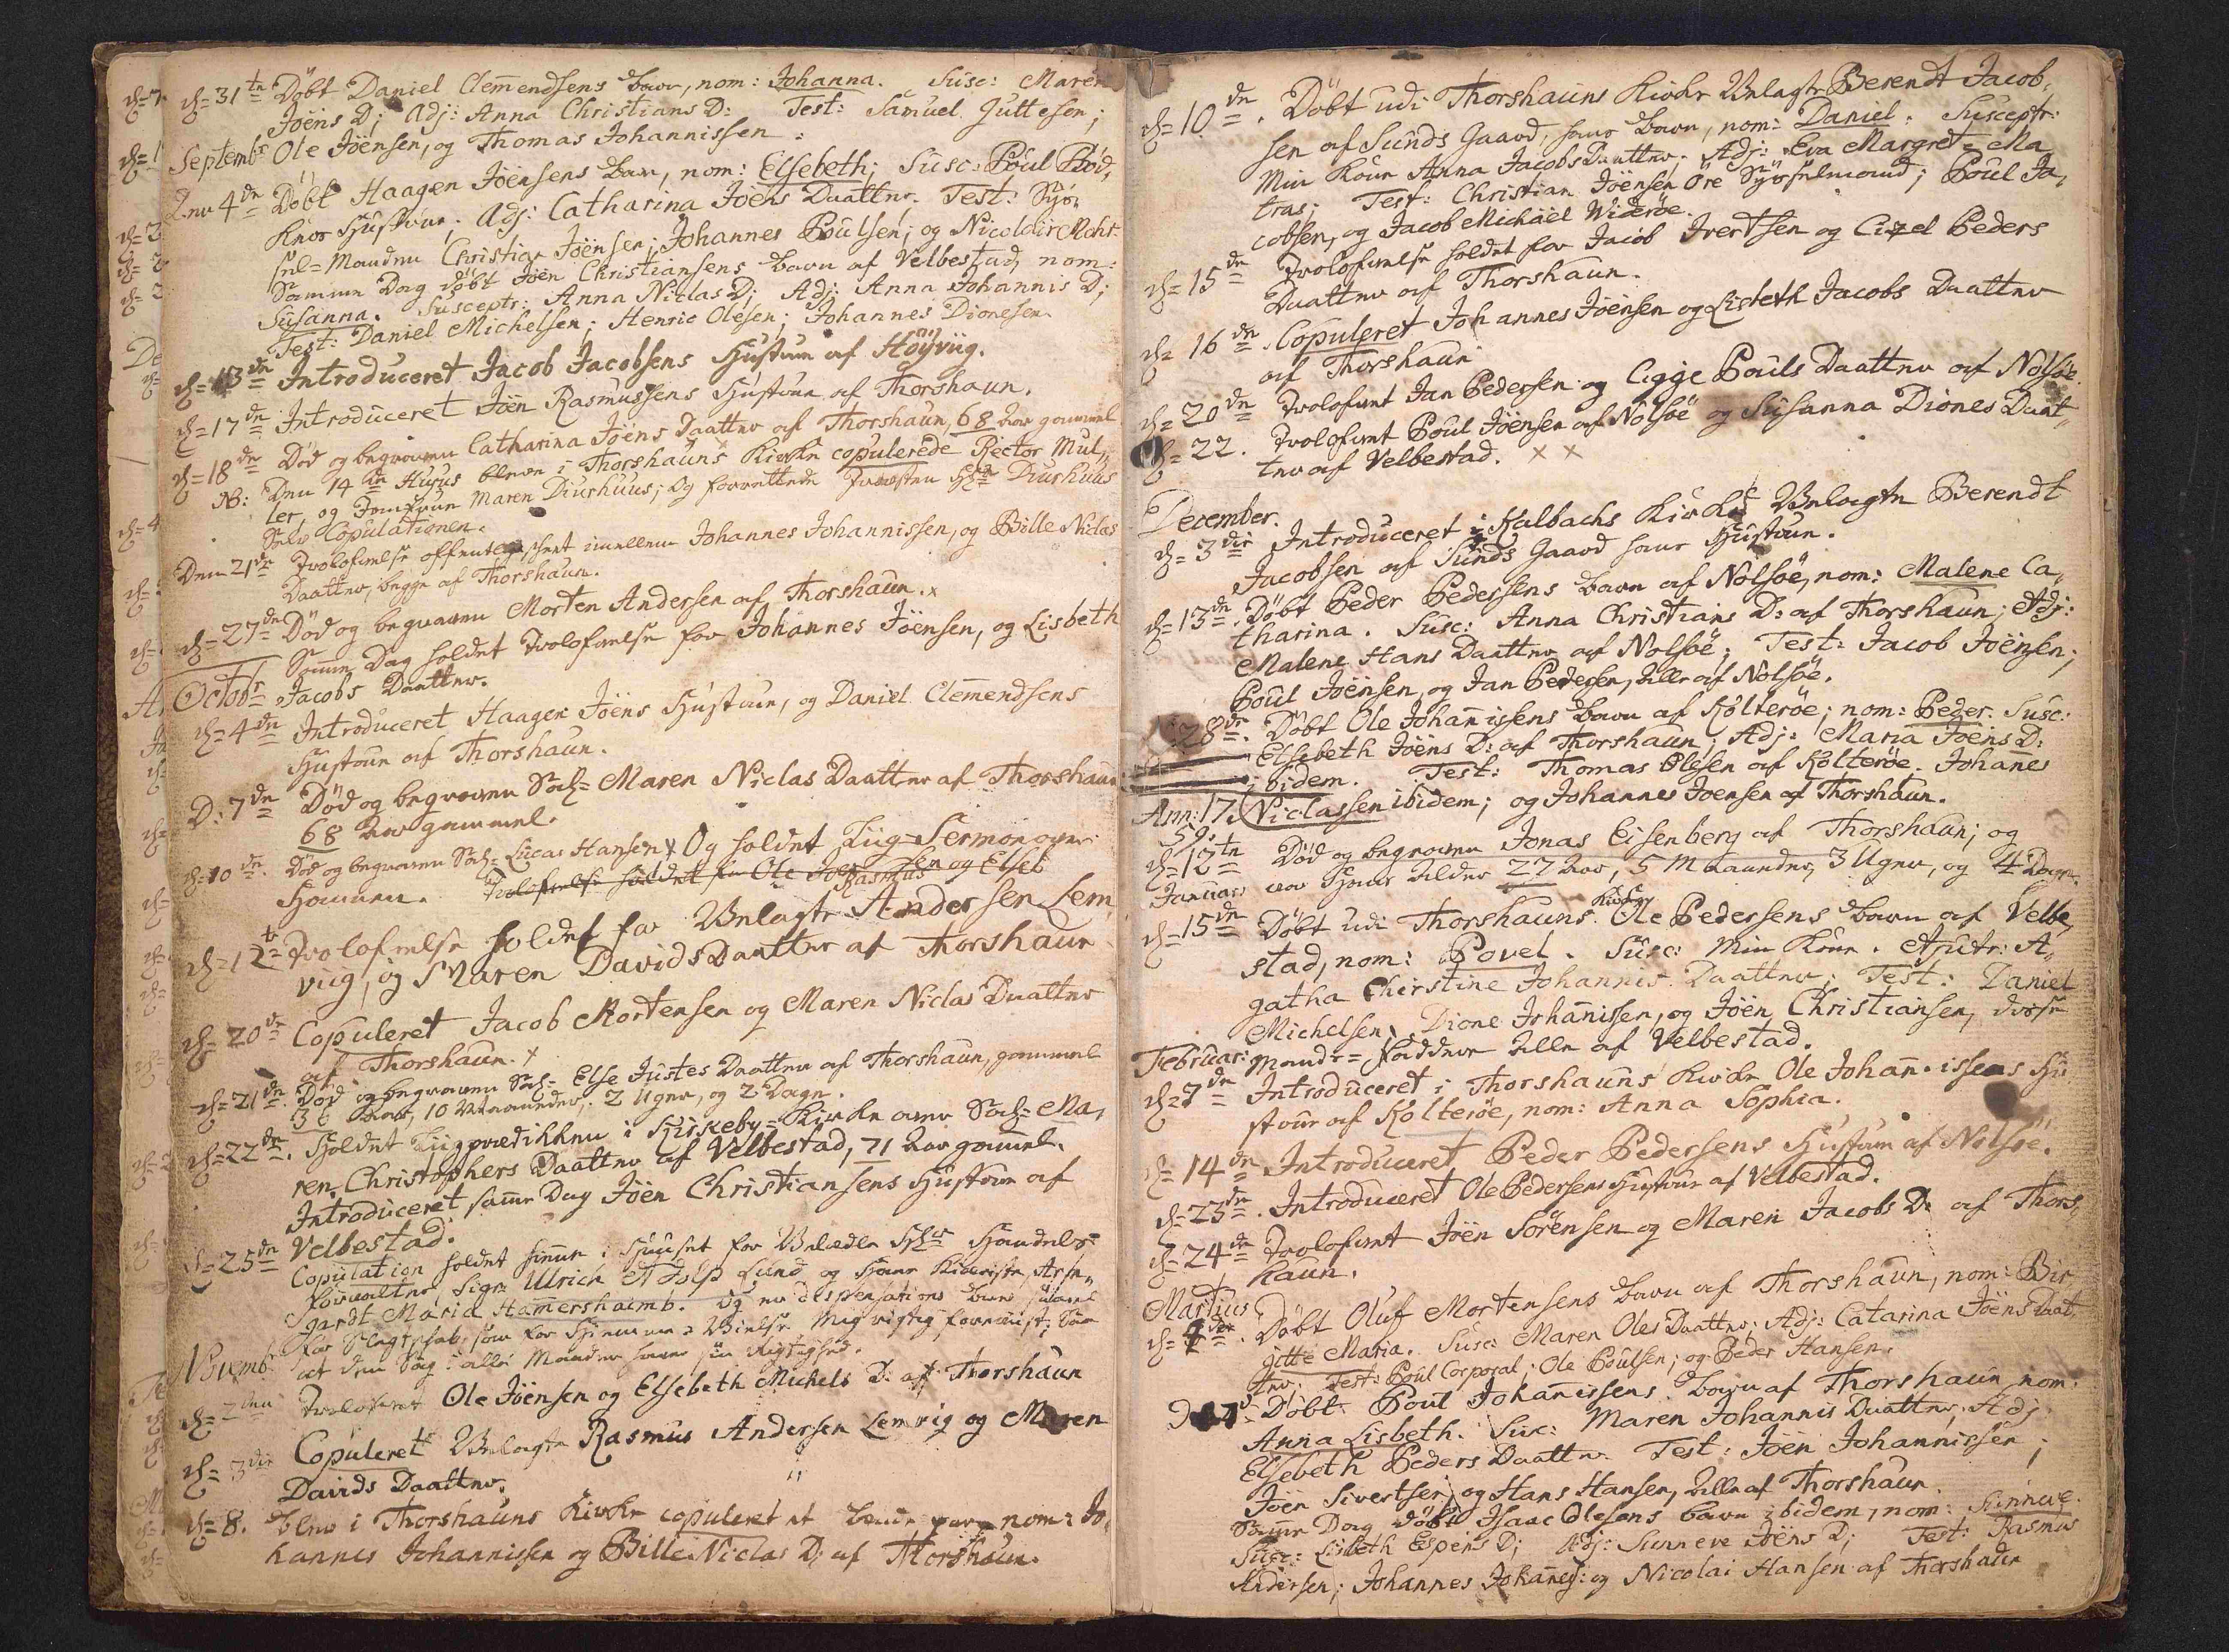 d= 31te Döbt Daniel Clemendsens barn, nom: Johanna. Susc: Maren
Joens D; Adj: Anna Christians D: Test: Samuel Juttesen;
Septembr Ole Jöensen, og Thomas Johannissen.
Den 4de Döbt Haagen Jöensens barn, nom: Elsebeth; Susc: Poul
Hustrue; Adj: Catharina Joens Daatter. Test: Sys-
sel-Manden Christian Jöensen; Johannes Poulsen; og Nicolai
Samme Dag döbt Jöen Christiansens barn af Velbestad, nom:
Susanna. Susceptr: Anna Niclas D; Adj: Anna Johannis D;
Test: Daniel Michelsen; Henric Olesen; Johannes Dionesen.
d= 13de Introduceret Jacob Jacobsens Hustrue af Höyviig.
d= 17de Introduceret Jöen Rasmussens Hustrue af Thorshaun.
d= 18de Död og begraven Catharina Jöens Daatter af Thorshaun, 68 Aar gammel
NB: Den 14de Hujus bleve i Thorshauns Kirke copulerede Rector Mul-
ler, og Jomfrue Maren Diurhuus; Og forrettede Provsten Hr Diurhuus
Selv Copulationen.
Den 21de Trolofvelse imellem Johannes Johannissen, og Bille Niclas
Daatter, begge af Thorshaun.
d= 27de Död og begraven Morten Andersen af Thorshaun. x
Samme Dag holdet Trolofvelse for Johannes Jöensen, og Lisbeth
Octobr Jacobs Daatter.
d= 4de Introduceret Haagen Jöens Hustrue, og Daniel Clemendsens
Hustrue af Thorshaun.
D: 7de Död og begraven Sal= Maren Niclas Daatter af Thorshaun
68 Aar gammel.
d= 10de. Död og begraven Sal= Lucas Hansen x Og holdet Liig=Sermon over
Hannem. Trolofvelse holdet for Ole og Elseb
Rasmus
d= 12te Trolofvelse holdet for Velagte Andersen Lem-
viig, og Maren Davids Daatter af Thorshaun
d= 20de Copuleret Jacob Mortensen og Maren Niclas Daatter
af Thorshaun. x
d= 21de. Död og begraven Sal= Else Justes Daatter af Thorshaun, gammel
Aar, 10 Maaneder, 2 Uger, og 2 Dage.
d= 22de. Holdet Liigprædikken i Kirkeby=Kirke over Sal= Ma-
ren Christophers Daatter af Velbestad, 71 Aar gammel.
Introduceret samme Dag Jöen Christiansens Hustrue af
Velbestad.
d= 25de Copulation holdet hiemme i Huuset for Handels=
forvalter Sigr Ulrich Adolp Lund og Hans Kiereste, Arm-
gardt Maria Hammershaimb. Og er dispensations
for Slegtskab som for Hiemme=Vielse Mig rigtig foreviist; Saa
Novemb. at den Sag i alle Maader haver sin Rigtighed.
d= 2den Trolofvet Ole Jöensen og Elsebeth Michels D: af Thorshaun
d= 3die Copuleret Velagte Rasmus Andersen Lemvig og Maren
Davids Daatter.
d= 8. blev i Thorshauns Kirke copuleret et nom: Jo-
hannes Johannissen og Bille Niclas D: af Thorshaun.
d= 10de. Döbt udi Thorshauns Kirke Velagte Berendt Jacob-
sen af Sunds Gaard hans barn, nom: Daniel. Susceptr:
Min Kone Anna Jacobs Daatter. Adj: Eva Margrete Ma-
tras; Test: Christian Jöensen Öre Sysselmand; Poul Ja-
cobsen, og Jacob Michael Wideröe.
d= 15de Trolofvelse holdet for Jacob Ivertsen og Cizel Peders
Daatter af Thorshaun.
d= 16de. Copuleret Johannes Jöensen og Lisbeth Jacobs Daatter
af Thorshaun
d= 20de Trolofvet Jan Pedersen og Ligge Pouls Daatter af Nolsöe.
d= 22. Trolofvet Poul Jöensen af Nolsöe og Susanna Diones Daat-
ter af Velbestad. x x
December.
d= 3die Introduceret i Kalbachs Kirke Velagte Berendt
Jacobsen af Sunds Gaard hans Hustrue.
d= 13de. Döbt Peder Pedersens barn af Nolsöe, nom: Malene Ca-
tharina. Susc: Anna Christians D: af Thorshaun; Adj:
Malene Hans Daatter af Nolsöe; Test: Jacob Joensen;
Poul Joensen, og Jan Pedersen, alle af Nolsöe.
28de. Döbt Ole Johannissens barn af Kolteröe; nom: Peder. Susc:
Elsebeth Jöens D: af Thorshaun; Adj: Maria Joens D:
ibidem. Test: Thomas Olesen af Kolteröe. Johanes
Ann: 17 Niclassen ibidem; og Johannes Joensen af Thorshaun.
59.
d= 12te Död og begraven Jonas Eisenberg af Thorshaun; og
Januar: var Hans Alder 27 Aar, 5 Maaneder, 3 Uger, og 4 Dage.
Kirke
d= 15de Döbt udi Thorshauns Ole Pedersens barn af Velbe-
stad, nom: Povel. Susc: Min Kone. Adjutr: A-
gatha Chirstine Johannis Daatter; Test: Daniel
Michelsen, Dione Johanissen, og Jöen Christiansen, disse
Februar: Mand=Faddere alle af Velbestad.
d= 7de Introduceret i Thorshauns Kirke Ole Johanissens Hu
strue af Kolteröe, nom: Anna Sophia.
d= 14de Introduceret Peder Pedersens Hustrue af Nolsöe.
d= 23de. Introduceret Ole Pedersens Hustrue af Velbestad.
d= 24de Trolofvet Jöen Sörensen og Maren Jacobs D: af Thors-
haun.
Martius
d= Döbt Oluf Mortensens barn af Thorshaun, nom: Bir
gitte Maria. Susc: Maren Oles Daatter; Adj: Catarina Jöens Daat
ter; Test: Poul Corporal; Ole Poulsen; og Peder Hansen.
Döbt Poul Johannissens barn af Thorshaun, nom:
Anna Lisbeth. Susc: Maren Johannis Daatter, Adj:
Elsebeth Peders Daatter. Test: Jöen Johannissen;
Jöen Sivertsen, og Hans Hansen, alle af Thorshaun.
Samme Dag döbt Isaac Olesens barn ibidem, nom: Sunneve.
Susc: Lisbeth Espens D; Adj: Sunneve Jöens D; Test: Rasmus
Andersen; Johannes Johannes: og Nicolai Hansen af Thorshaun